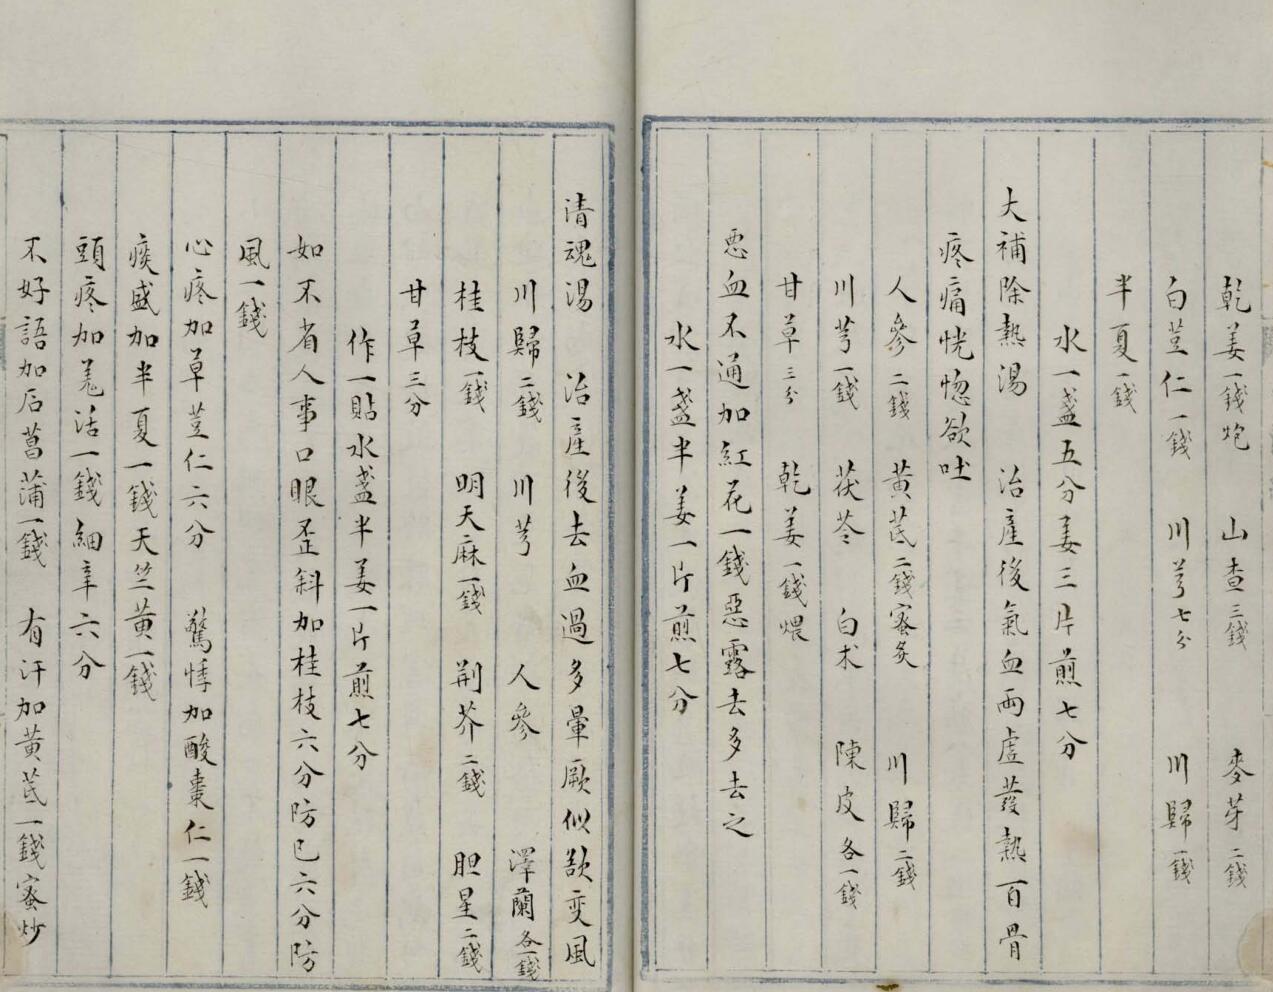 乾姜一錢炮 山查三錢 麥芽二錢
白荳仁一錢 川芎七分 川歸一錢
半夏一錢
水一盞五分姜三片煎七分
大補除熱湯 治產後氣血兩虛發熱百骨
疼痛恍惚欲吐
人參二錢 黃芪二錢蜜炙 川歸二錢
川芎一錢 茯苓 白术 陳皮各一錢
甘草三分 乾姜一錢煨
惡血不通加紅花一錢惡露去多去之
水一盞半姜一片煎七分
清魂湯 治產後去血過多暈厥似欲变風
川歸二錢 川芎 人參 澤蘭各一錢
桂枝一錢 明天麻一錢 荊芥二錢 胆星二錢
甘草三分
作一貼水盞半姜一片煎七分
如不省人事口眼歪斜加桂枝六分防已六分防
風一錢
心疼加草荳仁六分 驚悸加酸棗仁一錢
痰盛加半夏一錢天竺黄一錢
頭疼加羌活一錢細辛六分
不好語加石菖蒲一錢 有汗加黃芪一錢蜜炒